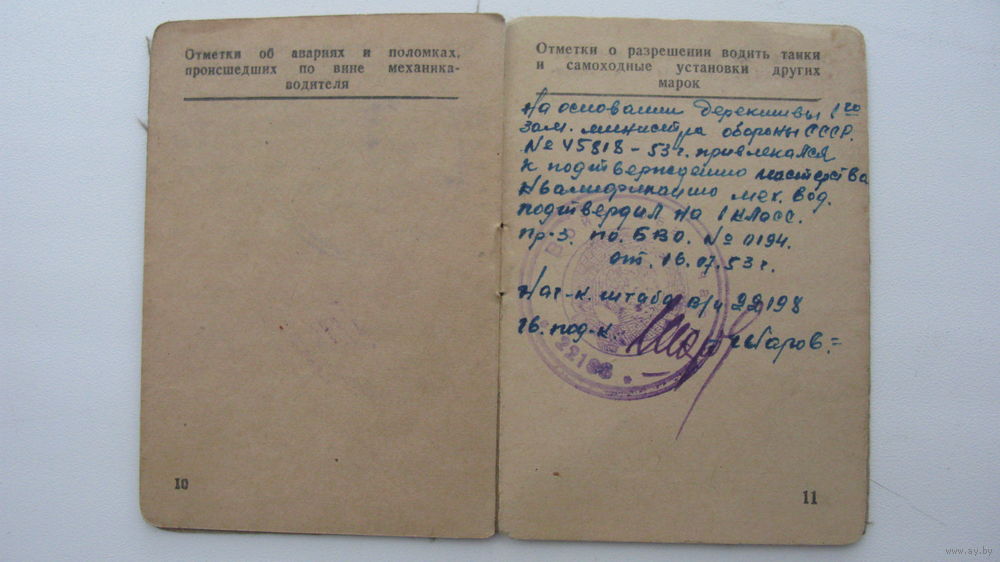 Отметки об авариях и поломках,
происшедших по вине механика-
водителя
10
Отметки о разрешении водить танки
и самоходные установки других
марок
На основании Дерективы 1го
зам. министра обороны СССР.
№ 45818-53г. привлекался
к подтверждению мастерства
Квалификацию мех. вод.
подтвердил на 1 класс.
пр-з. по. БВО. № 0194.
от. 16.07.53г.
Нач-к. штаба в/ч 22198
гв. под-к.
22198
11
www.ay.by